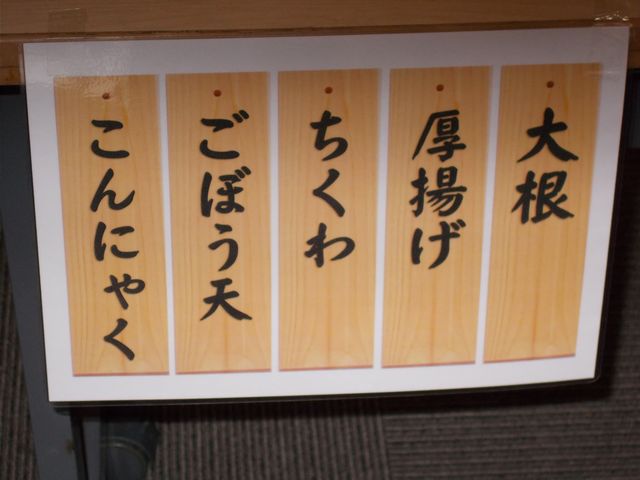 大根
厚揚げ
ちくわ
ごぼう天
こんにゃく